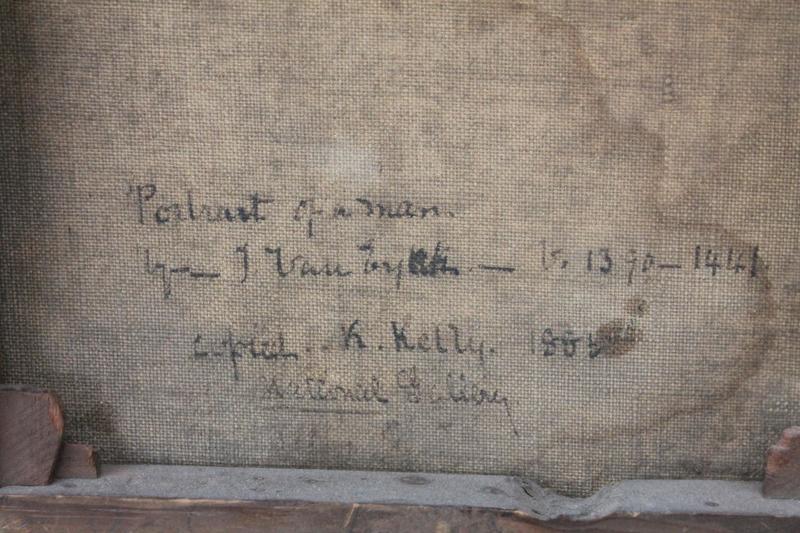 Portrait of a man.
by — J Van Eyck. — b. 1390 – 1441
copied. K. Kelly.
National Gallery